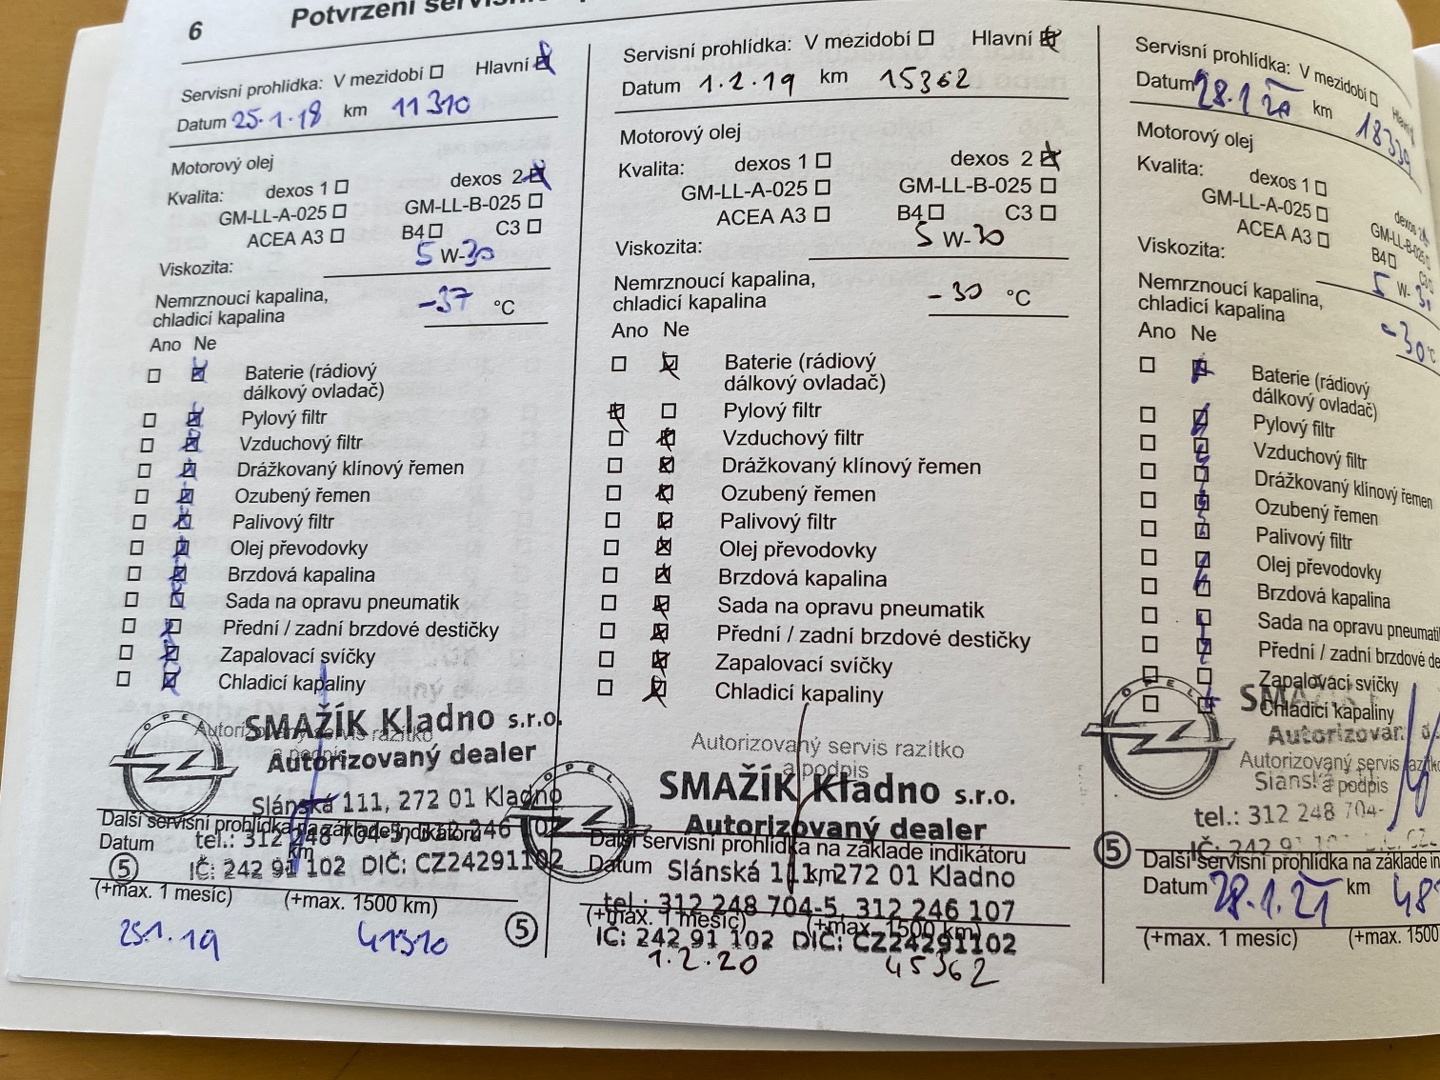 6
Potvrzení
Servisní prohlídka: V mezidobí Hlavní
Datum 25.1.18 km 11310
Motorový olej
Kvalita: dexos 1 dexos 2
GM-LL-A-025 GM-LL-B-025
ACEA A3 B4 C3
Viskozita: 5 W-30
Nemrznoucí kapalina,
chladicí kapalina -37 °C
Ano Ne
Baterie (rádiový
dálkový ovladač)
Pylový filtr
Vzduchový filtr
Drážkovaný klínový řemen
Ozubený řemen
Palivový filtr
Olej převodovky
Brzdová kapalina
Sada na opravu pneumatik
Přední / zadní brzdové destičky
Zapalovací svíčky
Chladicí kapaliny
OPEL
SMAŽÍK Kladno s.r.o.
Autorizovaný servis razítko
a podpis
Autorizovaný dealer
Slánská 111, 272 01 Kladno
Další servisní prohlídka na základe indikátoru
tel.: 312 248 704-5, 312 246 107
Datum km
5
IČ: 242 91 102 DIČ: CZ24291102
(+max. 1 mesíc) (+max. 1500 km)
25.1.19 41310
Servisní prohlídka: V mezidobí Hlavní
Datum 1.2.19 km 15362
Motorový olej
Kvalita: dexos 1 dexos 2
GM-LL-A-025 GM-LL-B-025
ACEA A3 B4 C3
Viskozita: 5 W-30
Nemrznoucí kapalina,
chladicí kapalina -30 °C
Ano Ne
Baterie (rádiový
dálkový ovladač)
Pylový filtr
Vzduchový filtr
Drážkovaný klínový řemen
Ozubený řemen
Palivový filtr
Olej převodovky
Brzdová kapalina
Sada na opravu pneumatik
Přední / zadní brzdové destičky
Zapalovací svíčky
Chladicí kapaliny
Autorizovaný servis razítko
a podpis
OPEL
SMAŽÍK Kladno s.r.o.
Autorizovaný dealer
Další servisní prohlídka na základe indikátoru
Datum km
Slánská 111, 272 01 Kladno
tel.: 312 248 704-5, 312 246 107
5
(+max. 1 mesíc) (+max. 1500 km)
IČ: 242 91 102 DIČ: CZ24291102
1.2.20 45362
Servisní prohlídka: V mezidobí
Datum 28.1.20 km 18339
Motorový olej
Kvalita: dexos 1 dexos
GM-LL-A-025 GM-LL-B-025
ACEA A3 B4
Viskozita: 5 W-30
Nemrznoucí kapalina,
chladicí kapalina -30 °C
Ano Ne
Baterie (rádiový
dálkový ovladač)
Pylový filtr
Vzduchový filtr
Drážkovaný klínový řemen
Ozubený řemen
Palivový filtr
Olej převodovky
Brzdová kapalina
Sada na opravu
Přední / zadní brzdové
Zapalovací svíčky
Chladicí kapaliny
OPEL
Autorizovaný servis
a podpis
Slánská
tel.: 312 248 704-
5
Další servisní prohlídka na základe
Datum 28.1.21 km
(+max. 1 mesíc) (+max. 1500